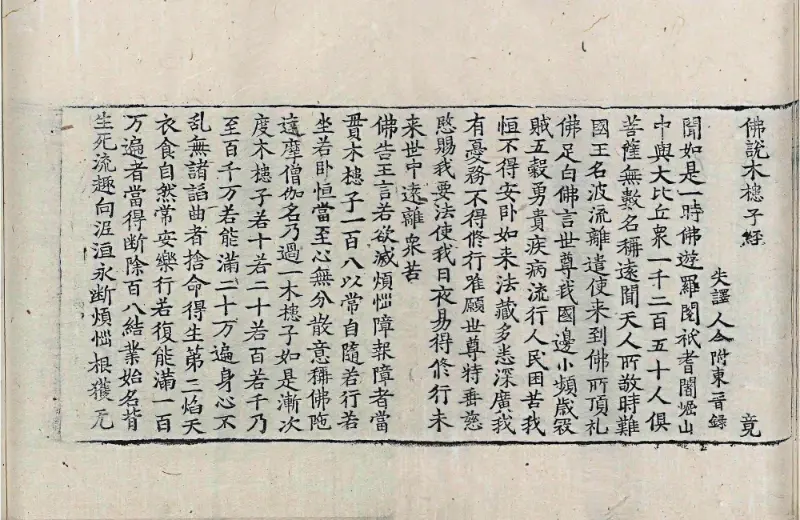 佛說木槵子經 竟
失譯人今附東晉錄
聞如是一時佛遊羅閱祇耆闍崛山
中與大比丘衆一千二百五十人俱
菩薩無數名稱遠聞天人所敬時難
國王名波流離遣使来到佛所頂礼
佛足白佛言世尊我國邊小頻歲冦
賊五糓勇貴疾病流行人民困苦我
恒不得安卧如来法藏多悉深廣我
有憂務不得修行唯願世尊特垂慈
愍賜我要法使我日夜易得修行未
来世中遠離衆苦
佛告王言若欲滅煩惱障報障者當
貫木槵子一百八以常自隨若行若
坐若卧恒當至心無分散意稱佛陁
達摩僧伽名乃過一木槵子如是漸次
度木槵子若十若二十若百若千乃
至百千万若能滿二十万遍身心不
乱無諸謟曲者捨命得生第三焰天
衣食自然常安樂行若復能滿一百
万遍者當得断除百八結業始名背
生死流趣向泥洹永断煩惱根獲无